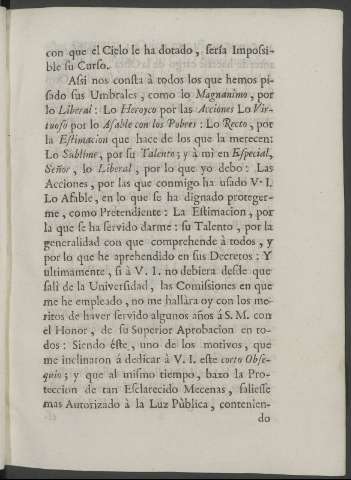 con que el Cielo le ha dotado, sería Imposi-
ble su Curso.
Assi nos consta à todos los que hemos pi-
sado sus Umbrales, como lo Magnanimo, por
lo Liberal: Lo Heroyco por las Acciones Lo Vir-
tuoso por lo Afable con los Pobres: Lo Recto, por
la Estimacion que hace de los que la merecen:
Lo Sublime, por su Talento; y à mi en Especial,
Señor, lo Liberal, por lo que yo debo: Las
Acciones, por las que conmigo ha usado V. I.
Lo Afable, en lo que se ha dignado proteger-
me, como Pretendiente: La Estimacion, por
la que se ha servido darme: su Talento, por la
generalidad con que comprehende à todos, y
por lo que he aprehendido en sus Decretos: Y
ultimamente, si à V. I. no debiera desde que
salì de la Universidad, las Comisiones en que
me he empleado, no me hallàra oy con los me-
ritos de haver servido algunos años á S. M. con
el Honor, de su Superior Aprobacion en to-
dos: Siendo éste, uno de los motivos, que
me inclinaron á dedicar à V. I. este corto Obse-
quio; y que al mismo tiempo, baxo la Pro-
teccion de tan Esclarecido Mecenas, saliesse
mas Autorizado à la Luz Pùblica, contenien-
do